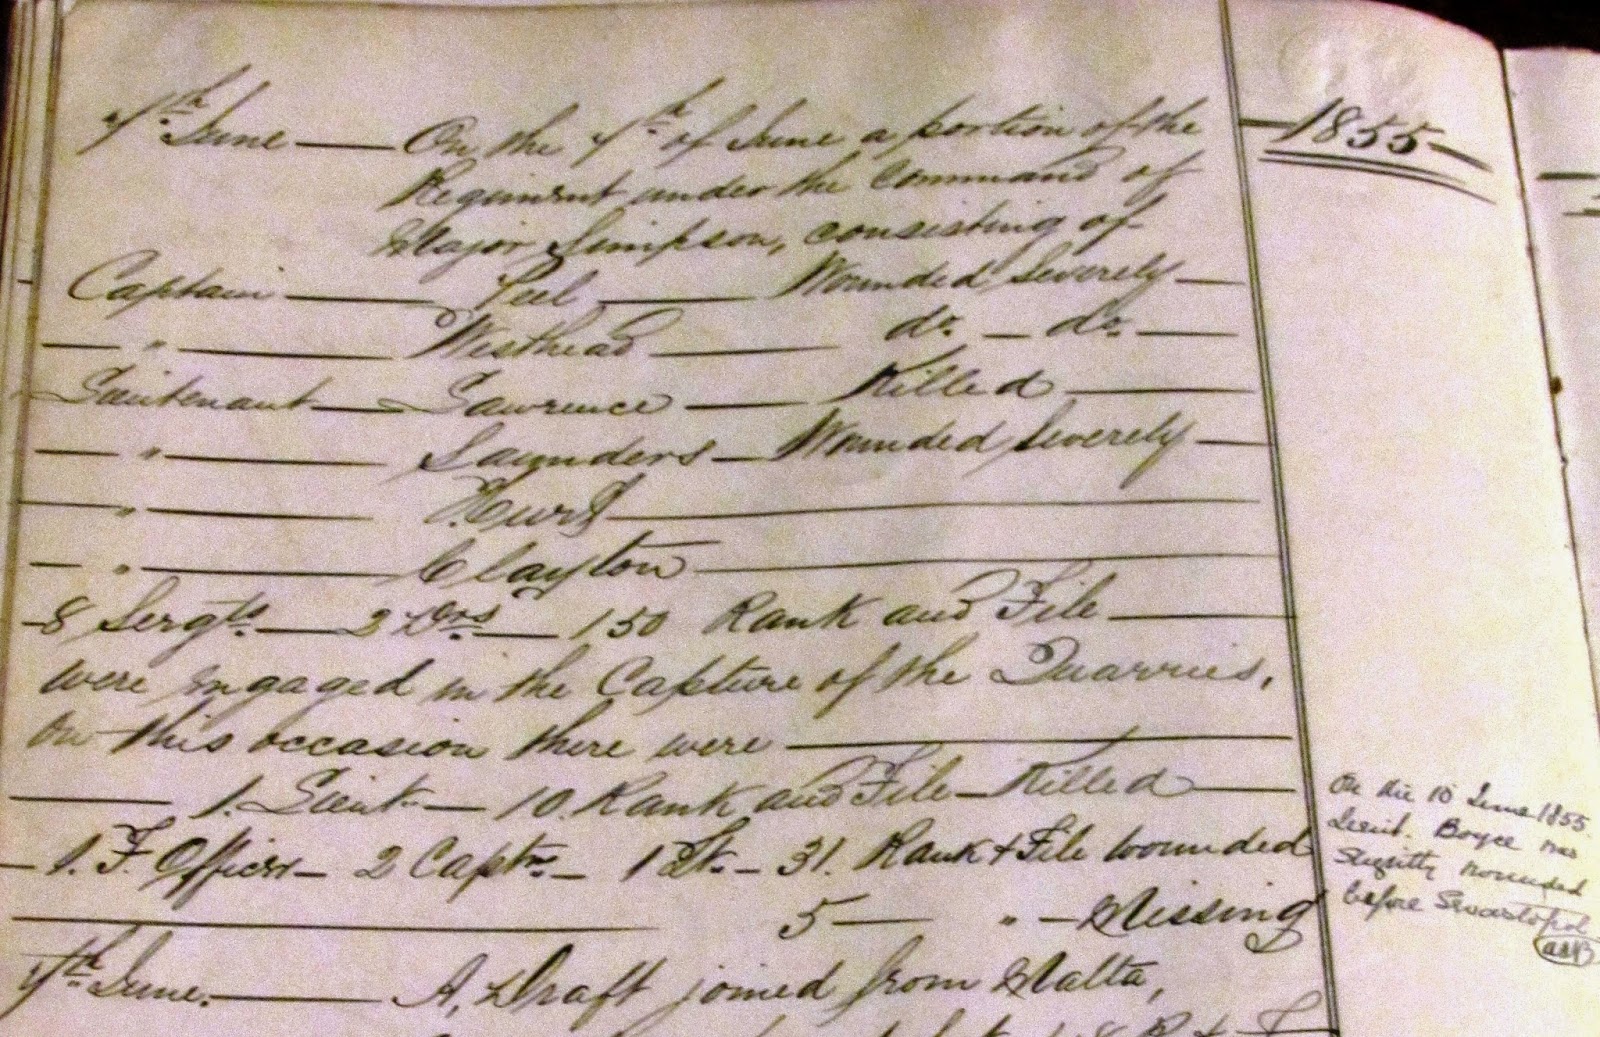 1855
7th June — On the 7th of June a portion of the
Regiment under the Command of
Major Simpson, consisting of
Captain — Peel — Wounded Severely —
— " — Westhead — do. — do. —
Lieutenant — Lawrence — Killed —
— " — Saunders — Wounded Severely —
— " — Hurt —
— " — Clayton —
8 Sergts. — 2 Drs — 150 Rank and File —
were engaged in the Capture of the Quarries,
On this occasion there were —
— 1. Lieut. — 10. Rank and File — Killed —
— 1. F. Officer — 2 Captns — 1 Lt. — 31. Rank & File wounded
— 5 — " — Missing
7th June. — A, Draft joined from Malta,
R & F
On the 10 June 1855.
Lieut. Boyce was
Slightly Wounded
before Sevastopol